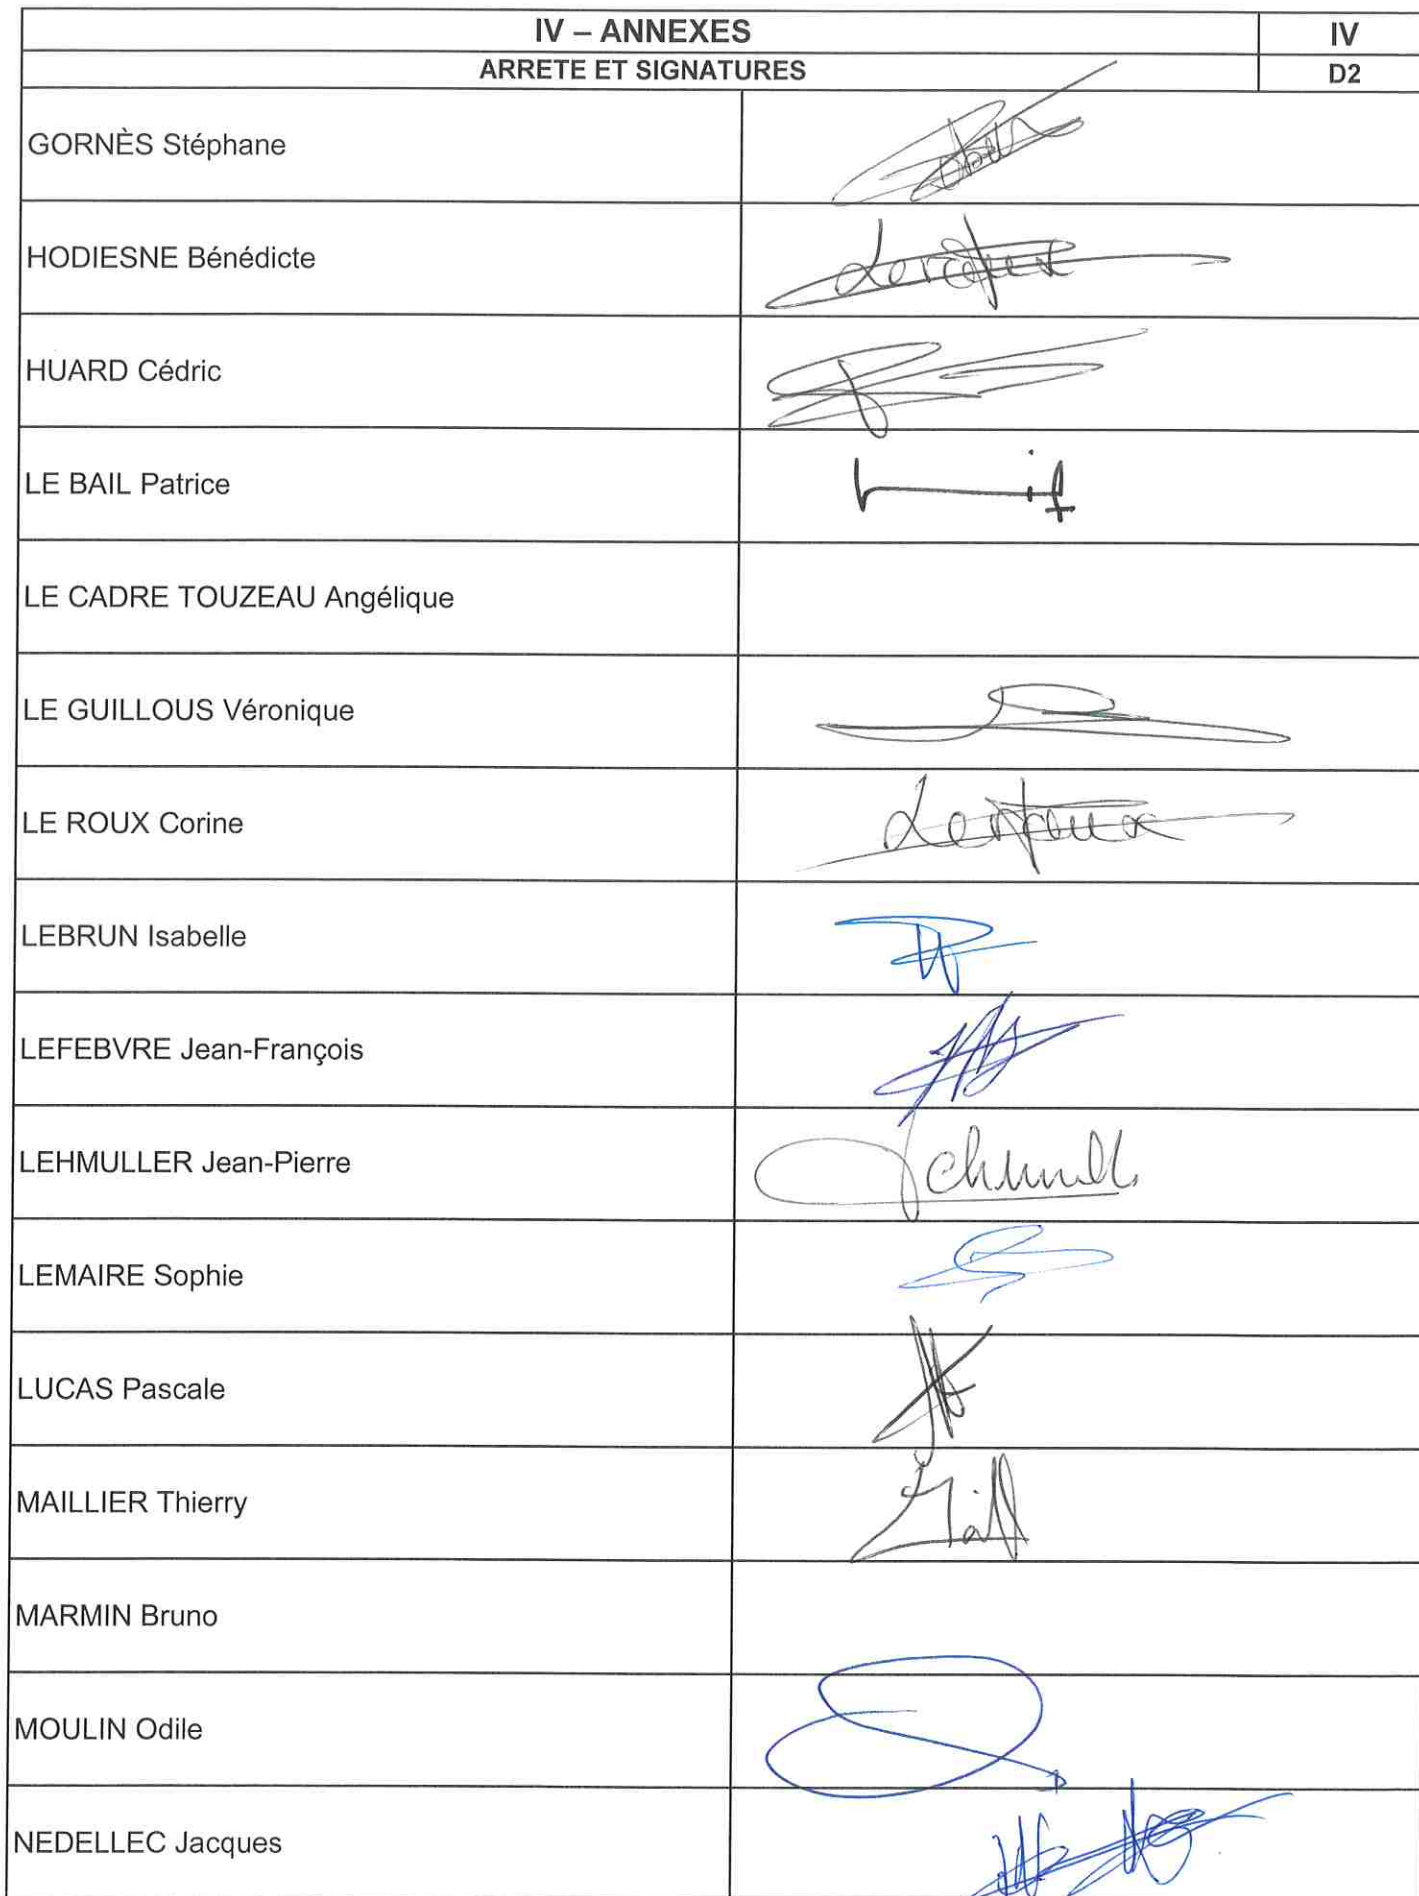 IV – ANNEXES
IV
ARRETE ET SIGNATURES
D2
GORNÈS Stéphane
HODIESNE Bénédicte
HUARD Cédric
LE BAIL Patrice
LE CADRE TOUZEAU Angélique
LE GUILLOUS Véronique
LE ROUX Corine
LEBRUN Isabelle
LEFEBVRE Jean-François
LEHMULLER Jean-Pierre
LEMAIRE Sophie
LUCAS Pascale
MAILLIER Thierry
MARMIN Bruno
MOULIN Odile
NEDELLEC Jacques